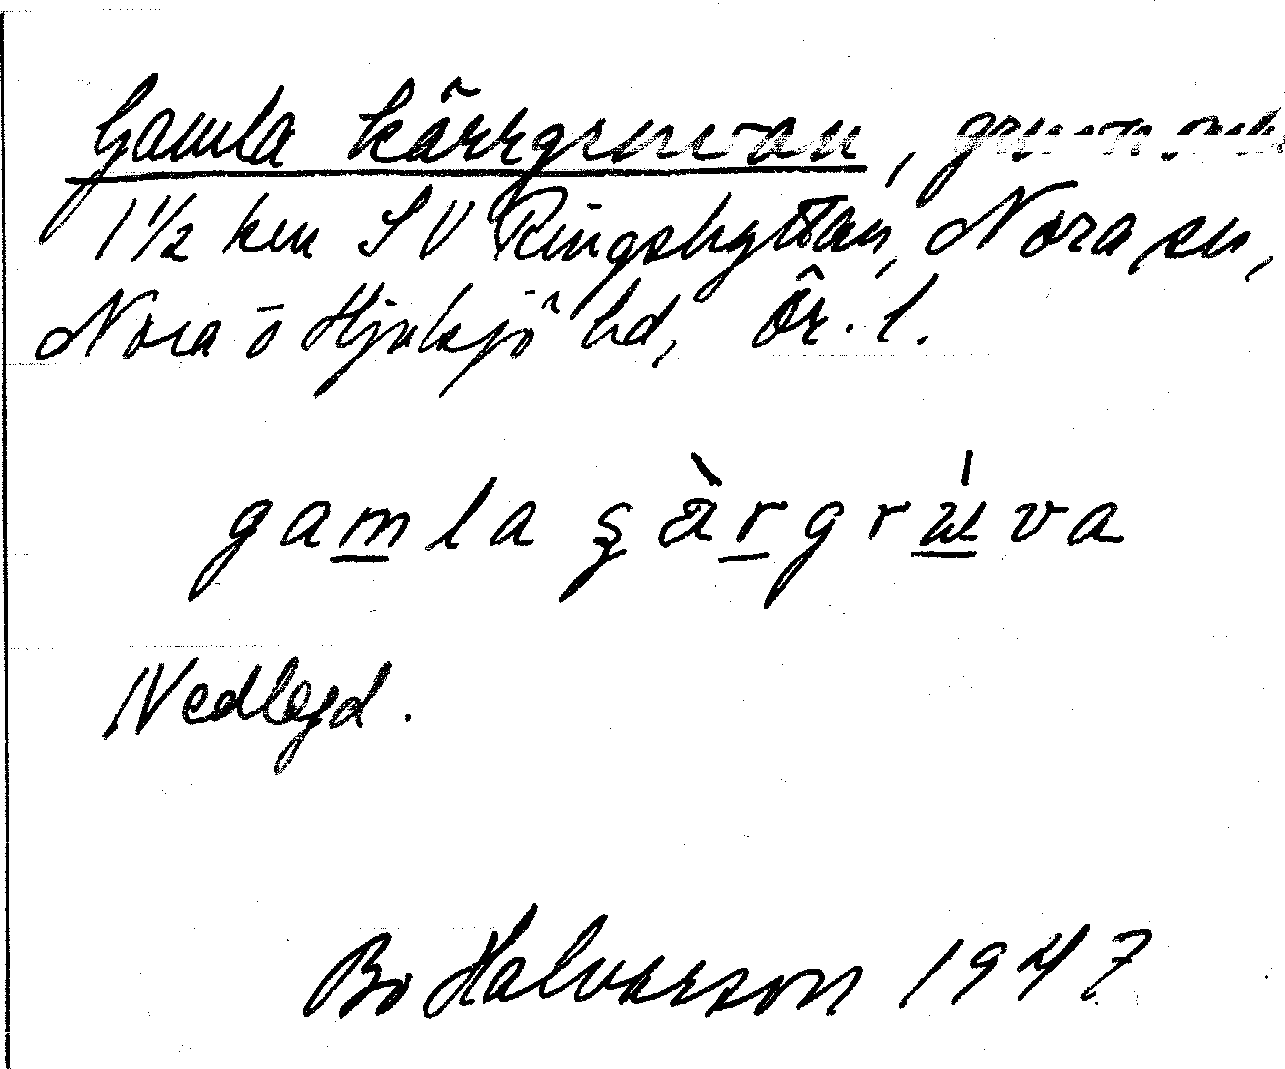 Gamla kärrgruvan,
1½ km SV Ringshyttan, Nora sn,
Nora o Hjulsjö hd, Ör. l.
gamla şàrgrúva
Nedlagd.
Bo Halvarson 1947